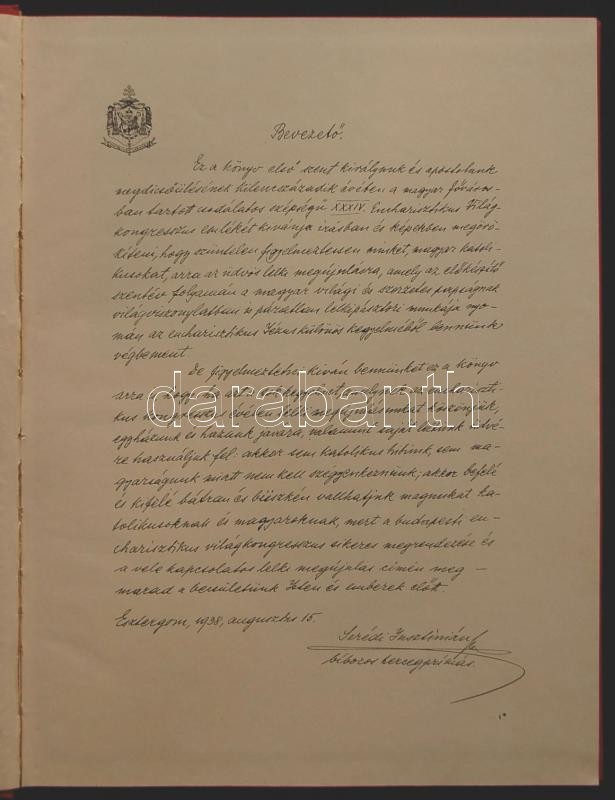 Bevezető.
Ez a könyv első szent királyunk és apostolunk
megdicsőülésének kilencszázadik évében a magyar főváros-
ban tartott csodálatos szépségű XXXIV. Eucharisztikus Világ-
kongresszus emlékét kívánja írásban és képekben megörö-
kíteni, hogy szüntelen figyelmeztessen minket, magyar katoli-
kusokat, arra az üdvös lelki megújulásra, amely az előkészítő
szentév folyamán a magyar világi és szerzetes papságnak
világviszonylatban is páratlan lelkipásztori munkája nyo-
mán az eucharisztikus Jézus különös kegyelméből bennünk
végbement.
De figyelmeztetni kíván bennünket ez a könyv
arra is, hogy ha azt a sok kegyelmet, melynek az euchariszti-
kus kongresszus évében lelki megújulásunkat köszönjük,
egyházunk és hazánk javára, valamint saját lelkünk üdvé-
re használjuk fel: akkor sem katolikus hitünk, sem ma-
gyarságunk miatt nem kell szégyenkeznünk; akkor befelé
és kifelé bátran és büszkén vallhatjuk magunkat ka-
tolikusoknak és magyaroknak, mert a budapesti eu-
charisztikus világkongresszus sikeres megrendezése és
a vele kapcsolatos lelki megújulás címén meg-
marad a becsületünk Isten és emberek előtt.
Esztergom, 1938, augusztus 15.
Serédi Jusztinián
bíboros hercegprímás.
darabanth